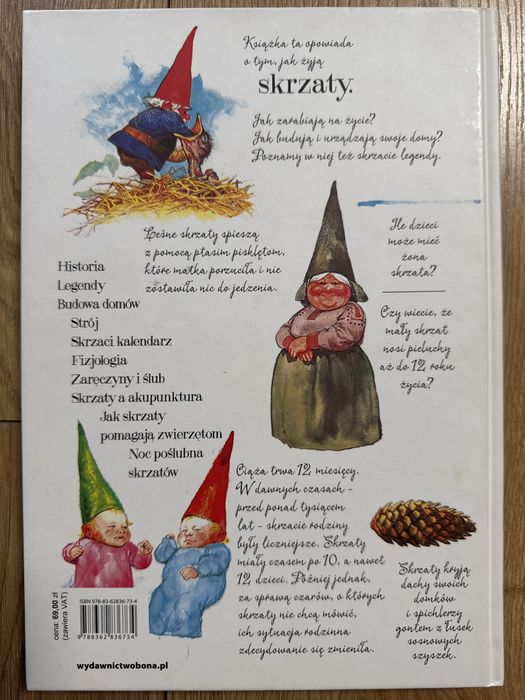 Książka ta opowiada
o tym, jak żyją
skrzaty.
Jak zarabiają na życie?
Jak budują i urządzają swoje domy?
Poznamy w niej też skrzacie legendy.
Leśne skrzaty spieszą
z pomocą ptasim pisklętom,
które matka porzuciła i nie
zostawiła nic do jedzenia.
Ile dzieci
może mieć
żona
skrzata?
Czy wiecie, że
mały skrzat
nosi pieluchy
aż do 12 roku
życia?
Historia
Legendy
Budowa domów
Strój
Skrzaci kalendarz
Fizjologia
Zaręczyny i ślub
Skrzaty a akupunktura
Jak skrzaty
pomagają zwierzętom
Noc poślubna
skrzatów
Ciąża trwa 12 miesięcy.
W dawnych czasach -
przed ponad tysiącem
lat - skrzacie rodziny
były liczniejsze. Skrzaty
miały czasem po 10, a nawet
12 dzieci. Później jednak,
za sprawą czarów, o których
skrzaty nie chcą mówić,
ich sytuacja rodzinna
zdecydowanie się zmieniła.
Skrzaty kryją
dachy swoich
domków
i spichlerzy
gontem z łusek
sosnowych
szyszek.
cena: 69,00 zł
(zawiera VAT)
ISBN 978-83-62836-73-4
9788362836734
wydawnictwobona.pl